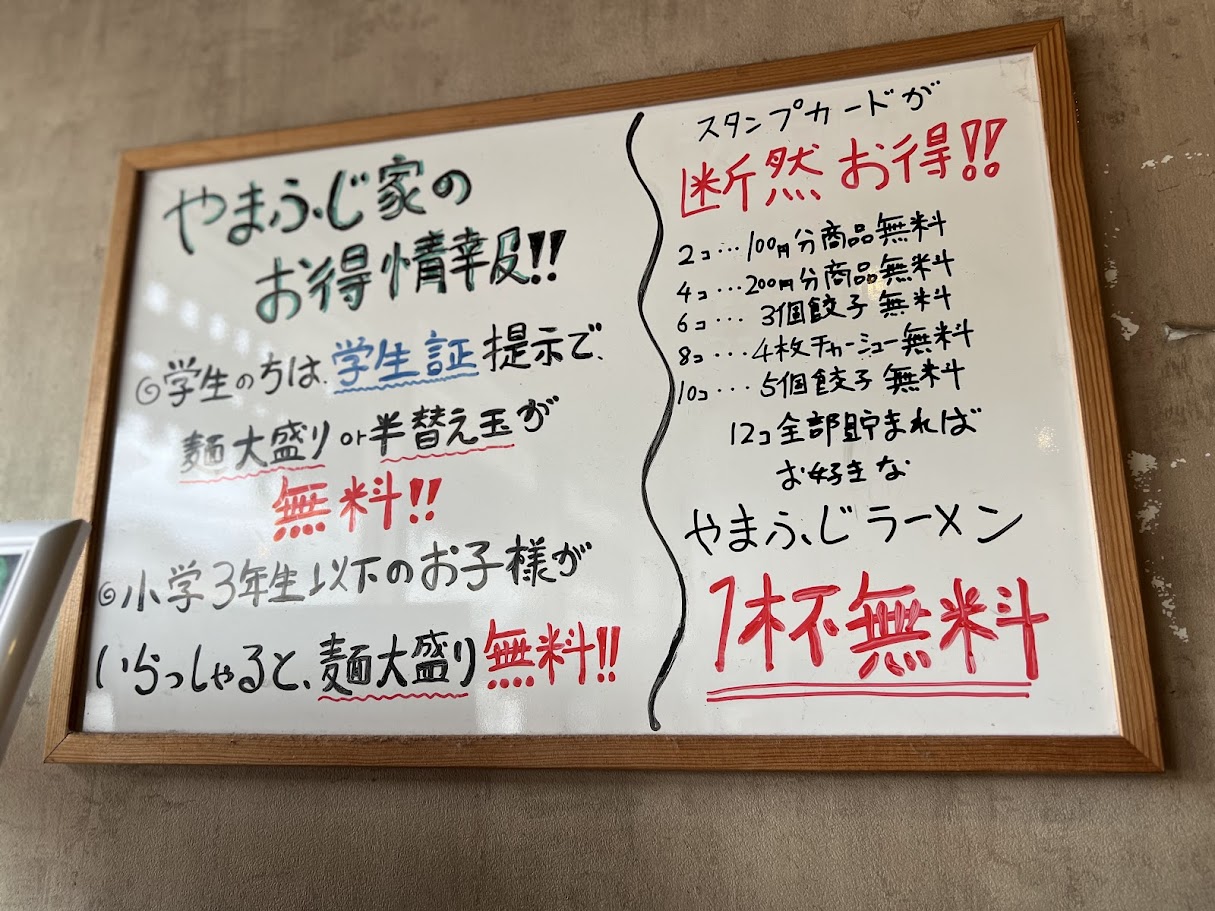 やまふじ家の
お得情報!!
◎学生の方は、学生証提示で、
麺大盛りor半替え玉が
無料!!
◎小学3年生以下のお子様が
いらっしゃると、麺大盛り無料!!
スタンプカードが
断然お得!!
2コ…100円分商品無料
4コ…200円分商品無料
6コ…3個餃子無料
8コ…4枚チャーシュー無料
10コ…5個餃子無料
12コ全部貯まれば
お好きな
やまふじラーメン
1杯無料